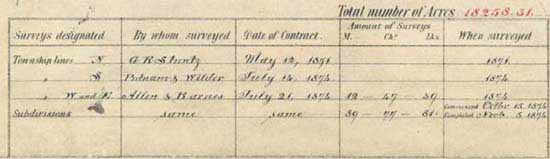 Total number of Acres 18258.51.
Surveys designated By whom surveyed Date of Contract. Amount of Surveys M. Chs Lks. When surveyed
Township lines N. G R Stuntz May 12, 1871 1871.
" S. Putnam & Wilder July 14, 1874 1874
" W. and E. Allen & Barnes July 21, 1874 12 — 47 — 39 1874
Subdivisions same same 59 — 77 — 81 Commenced Octbr 15, 1874
Completed Novb. 5, 1874